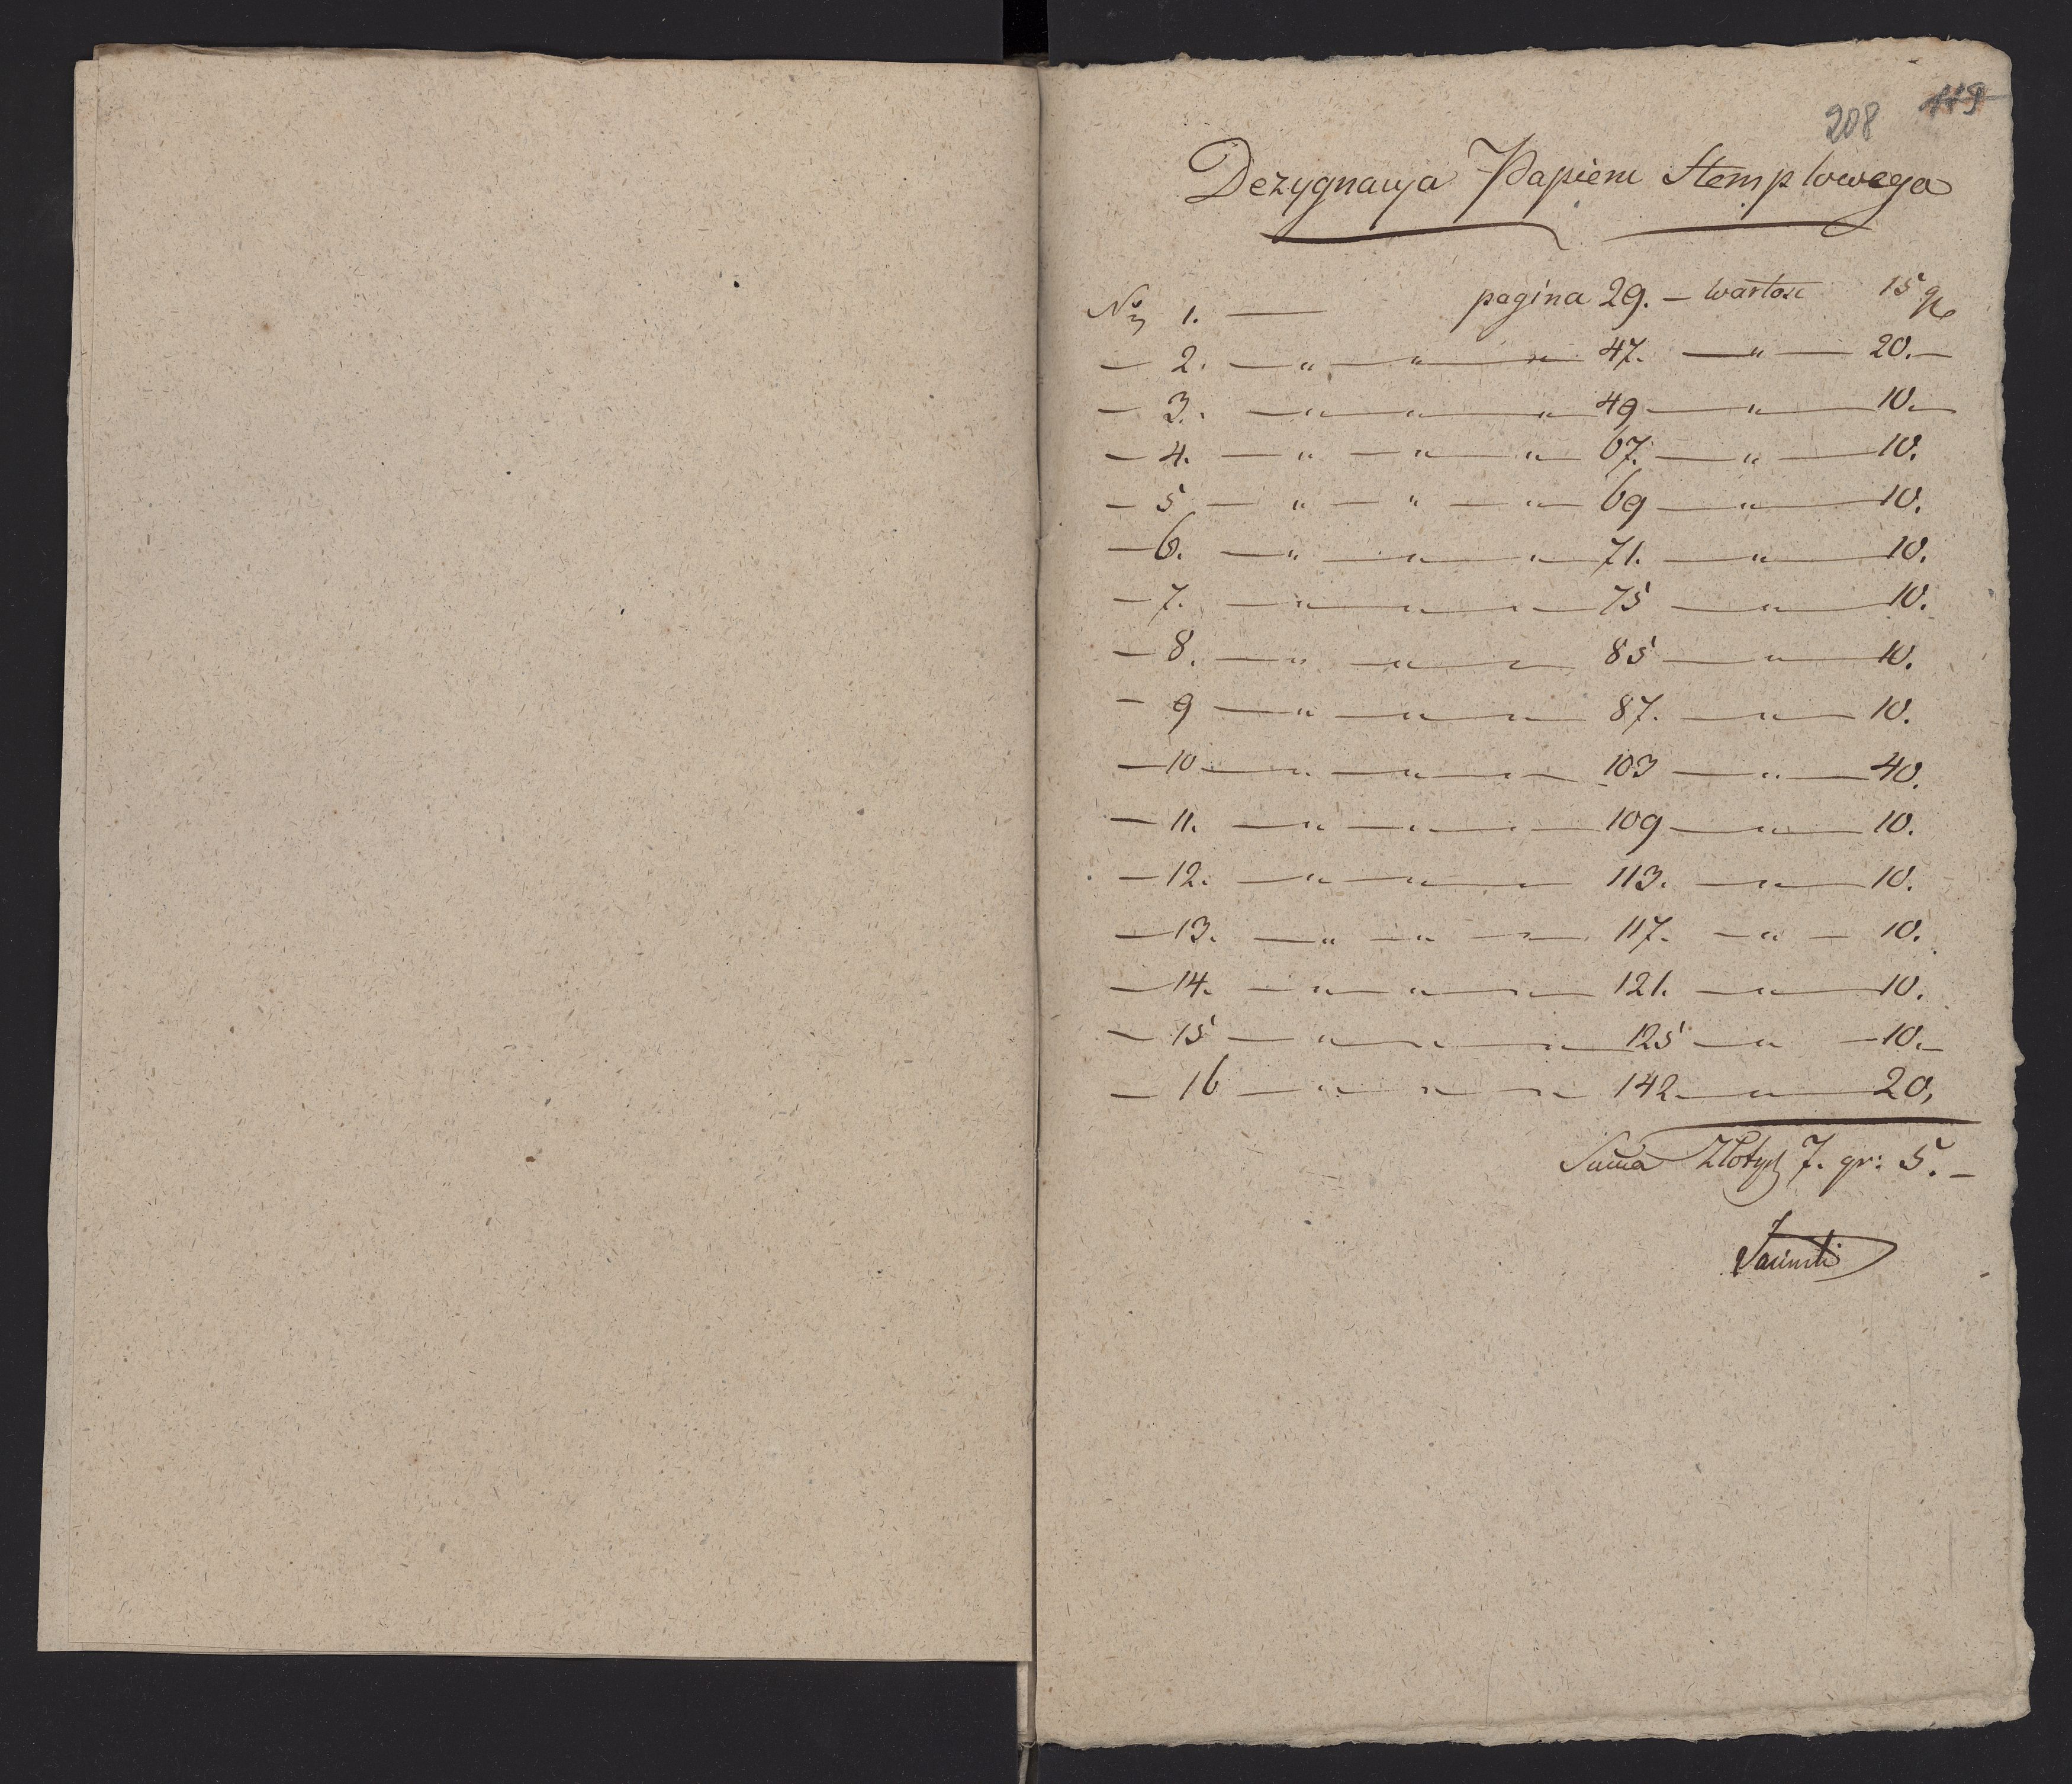 208 119
Dezygnacya Papieru Stemplowego
Nro 1. — pagina 29. — wartość 15 gr
— 2. — " — " — " — 47. — " — 20. —
— 3. — " — " — " — 49 — " — 10. —
— 4. — " — " — " — 67. — " — 10.
— 5 — " — " — " — 69 — " — 10.
— 6. — " — " — " — 71. — " — 10.
— 7. — " — " — " — 75 — " — 10.
— 8. — " — " — " — 85 — " — 10.
— 9 — " — " — " — 87. — " — 10.
— 10 — " — " — " — 103 — " — 40.
— 11. — " — " — " — 109 — " — 10.
— 12. — " — " — " — 113. — " — 10.
— 13. — " — " — " — 117. — " — 10.
— 14. — " — " — " — 121. — " — 10.
— 15 — " — " — " — 125 — " — 10. —
— 16 — " — " — " — 142 — " — 20,
Suma Złotych 7. gr: 5. —